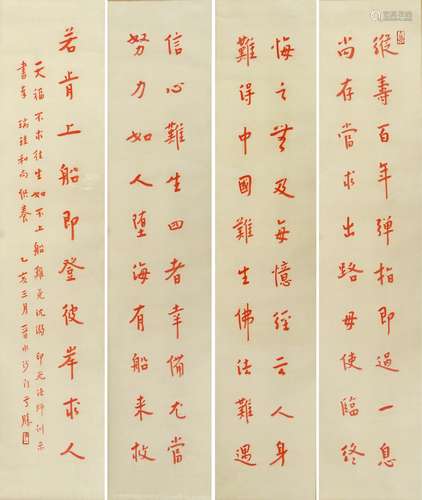 縱壽百年彈指即過一息
尚存當求出路毋使臨終
悔之無及每憶經言人身
難得中國難生佛法難遇
信心難生四者幸備尤當
努力如人墮海有船來救
若肯上船即登彼岸求人
天福不求往生如不上船難免沈溺 印光法師訓示
書奉 瑞祥和尚供養 乙亥三月